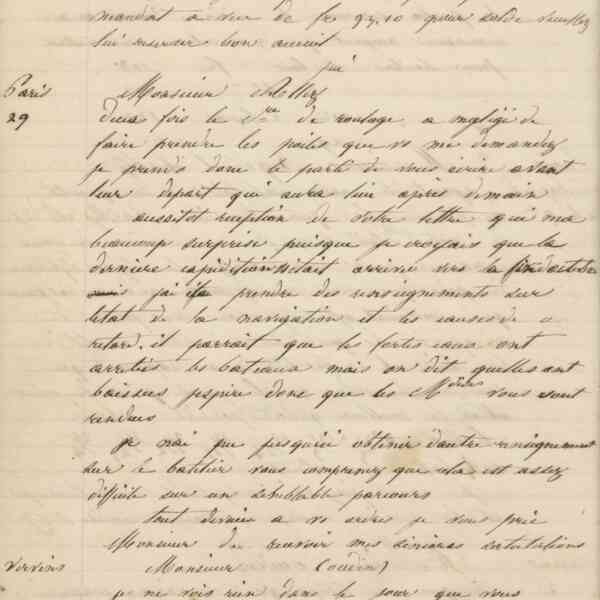 mandat à vue de fr 93,10 pour solde veuillez
lui réserver bon accueil
Paris
29
Monsieur
deux fois le Sre de roulage a négligé de
faire prendre les poëles que vs me demandez
je prends donc le parti de vous écrire avant
leur départ qui aura lieu après demain
aussitot reception de votre lettre qui ma
beaucoup surprise puisque je croyais que la
derniere expedition était arrivée vers la
mais j'ai prendre des renseignements sur
letat de la navigation et les causes de ce
retard, il parrait que les fortes eaux ont
arretés les bateaux mais on dit quelles ont
baissées jespere donc que les Mdises vous sont
rendues
je nai pu jusquici obtenir dautre renseignement
sur le batelier vous comprenez que cela est assez
difficile sur un semblable parcours
tout devoué a vs ordres je vous prie
Monsieur de recevoir mes sinceres salutations
Vervins
Monsieur Oudin
je ne vois rien dans le jour que vous